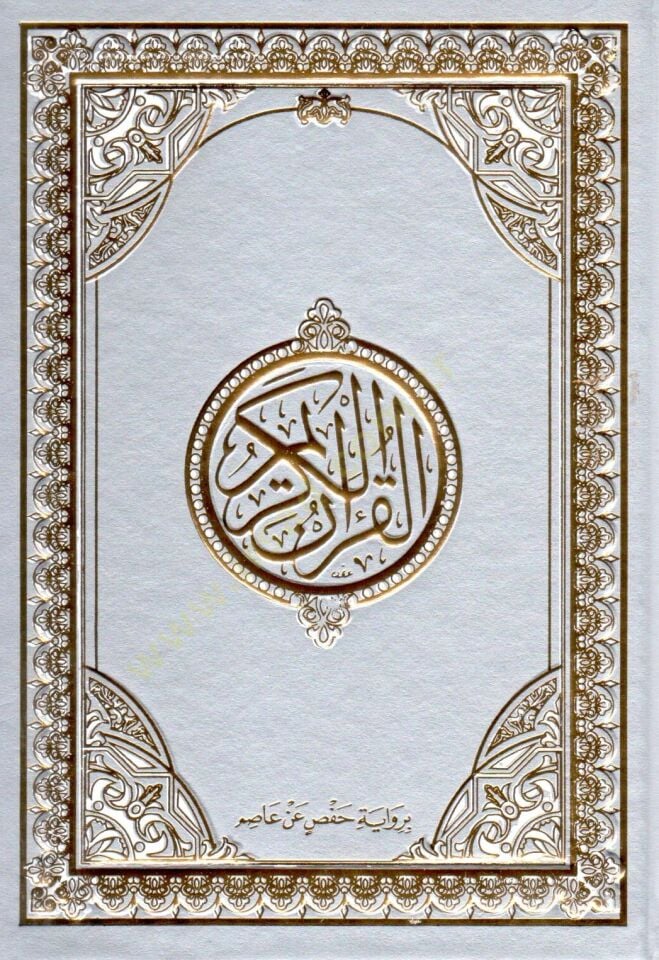 القرآن الكريم
بِرِوَايَةِ حَفْصٍ عَنْ عَاصِم